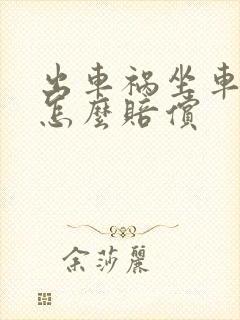 出車禍坐車
怎麼賠償
余莎麗